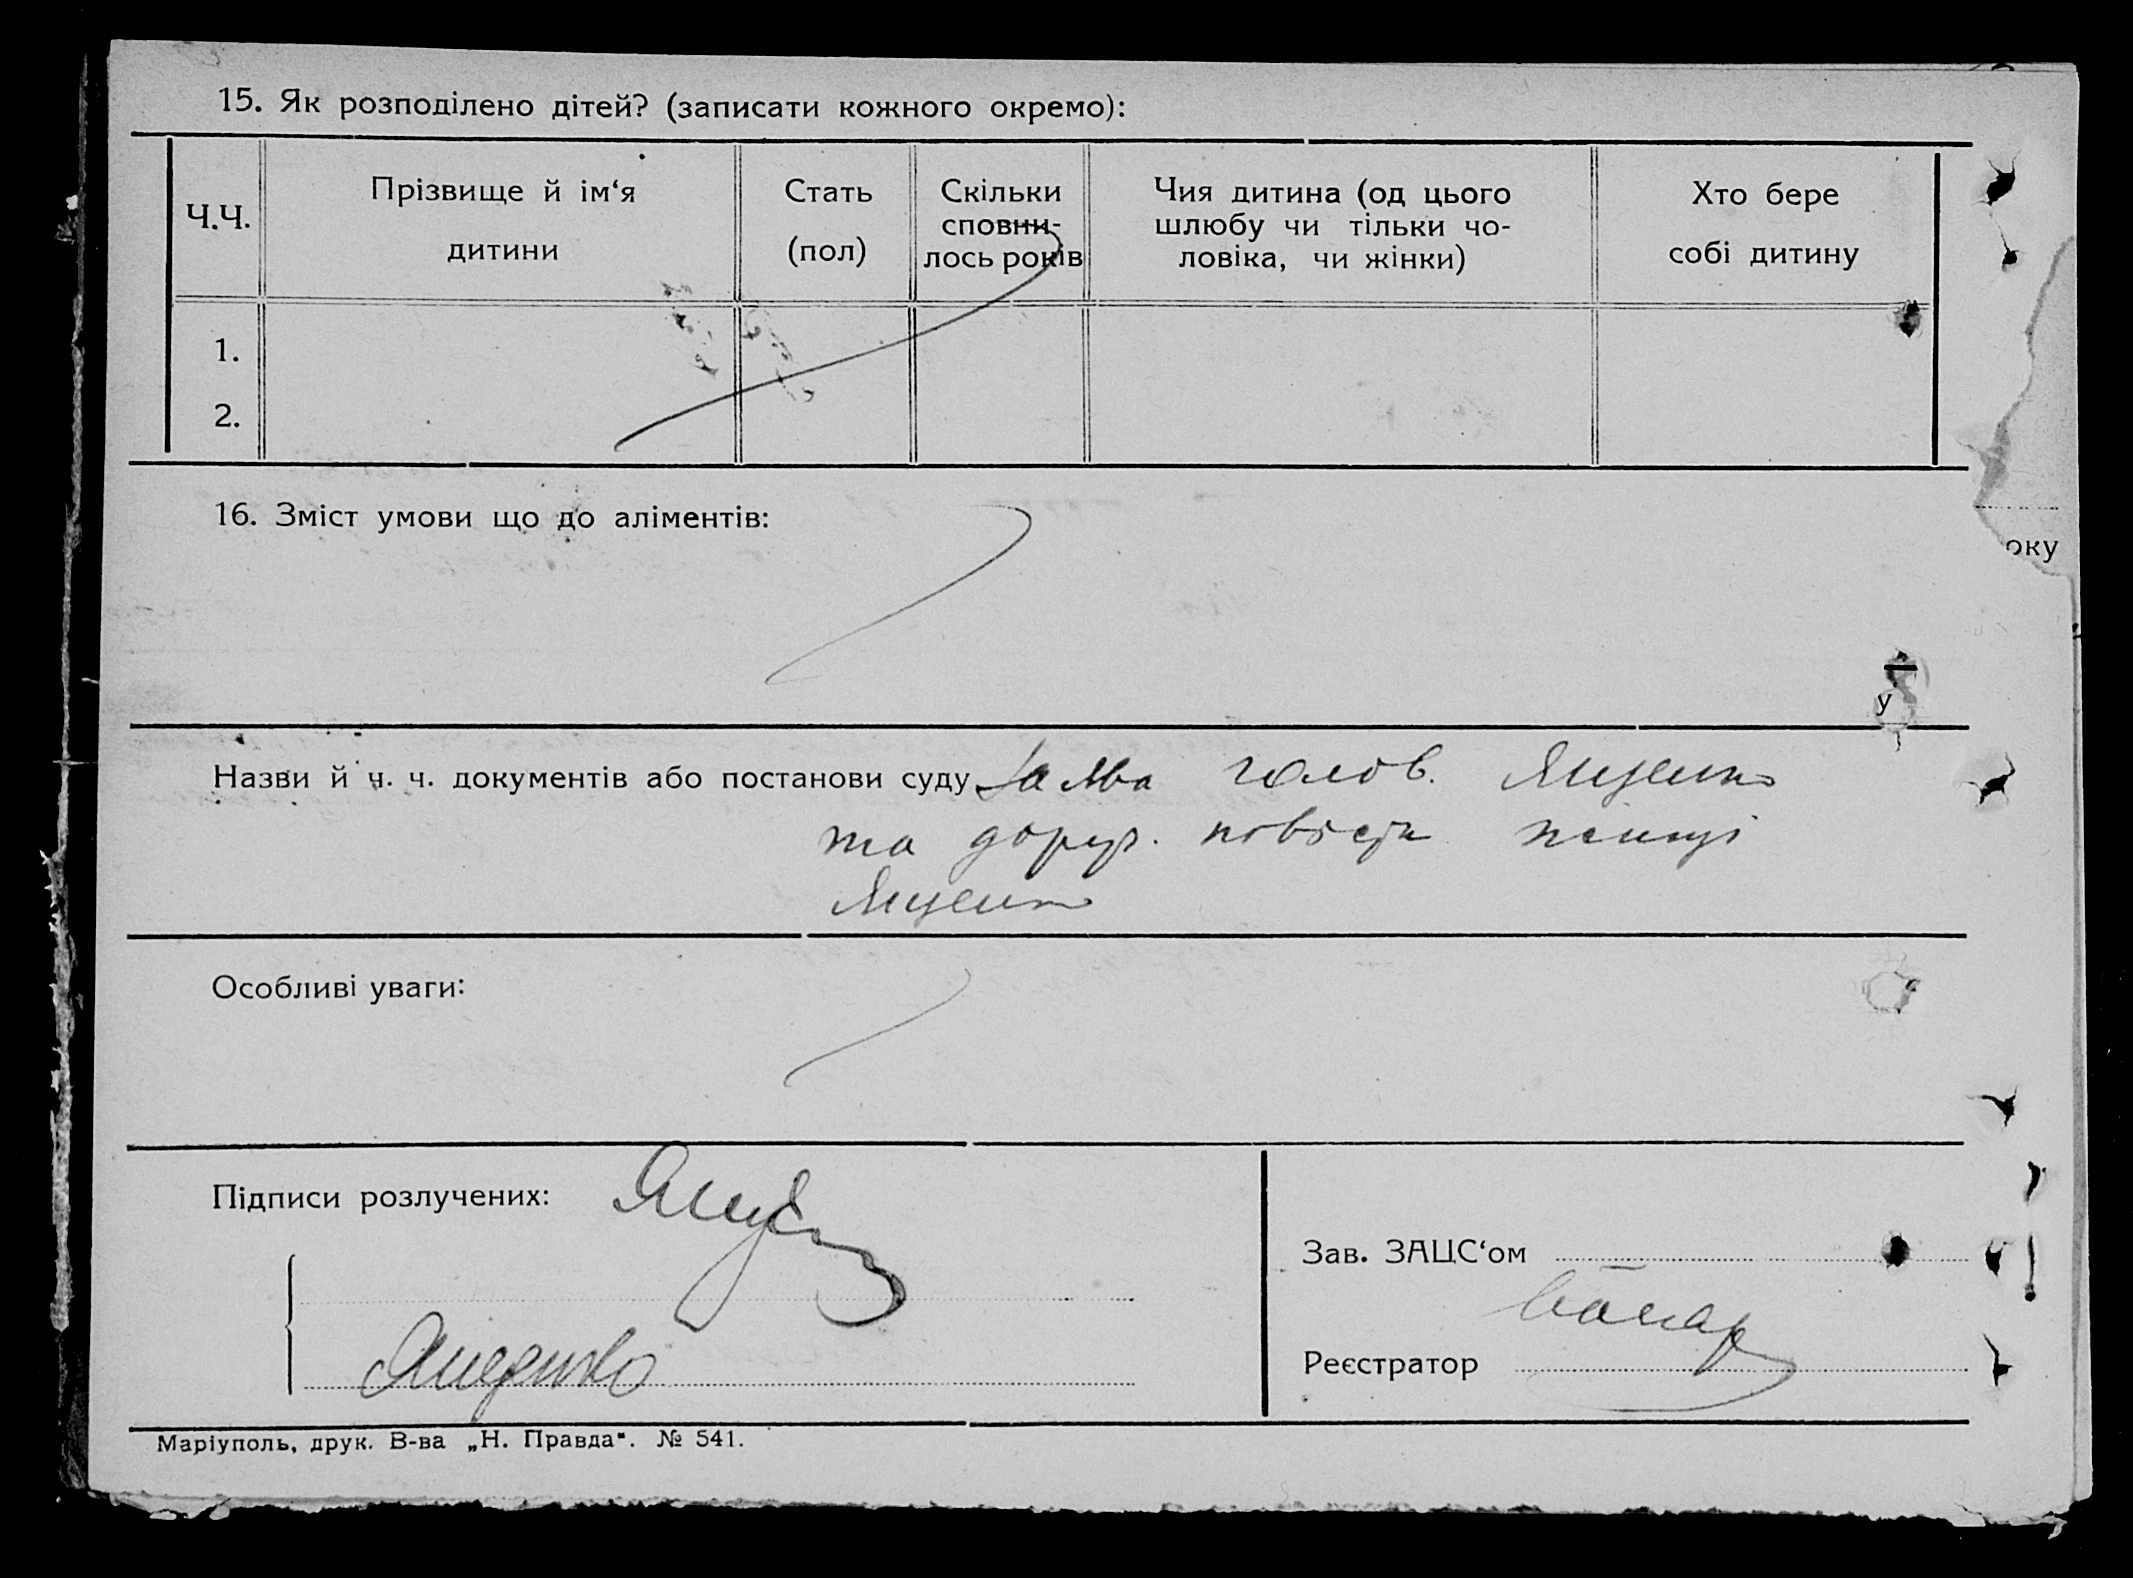 15. Як розподілено дітей? (записати кожного окремо):
Ч.Ч.
Прізвище й ім‘я
дитини
Стать
(пол)
Скільки
сповни-
лось років
Чия дитина (од цього
шлюбу чи тільки чо-
ловіка, чи жінки)
Хто бере
собі дитину
1.
2.
16. Зміст умови що до аліментів:
оку
у
Назви й ч. ч. документів або постанови суду Заява голов. Яценко
та повістк
Яценко
Особливі уваги:
Підписи розлучених:
Зав. ЗАЦС‘ом
Реєстратор
Маріуполь, друк. В-ва „Н. Правда“. № 541.